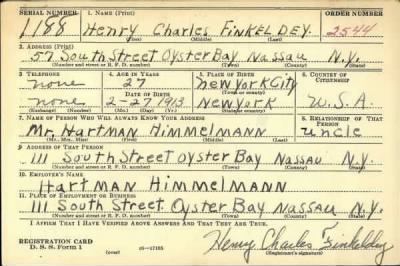 SERIAL NUMBER 1. NAME (Print) ORDER NUMBER
1188 Henry Charles FINKELDEY. 2544
(First) (Middle) (Last)
2. ADDRESS (Print)
57 South Street Oyster Bay Nassau N.Y.
(Number and street or R. F. D. number) (Town) (County) (State)
3. TELEPHONE 4. AGE IN YEARS 5. PLACE OF BIRTH 6. COUNTRY OF CITIZENSHIP
none 27 New York City
(Town or county)
DATE OF BIRTH
none 2-27-1913 New York U.S.A.
(Exchange) (Number) (Mo.) (Day) (Yr.) (State or country)
7. NAME OF PERSON WHO WILL ALWAYS KNOW YOUR ADDRESS 8. RELATIONSHIP OF THAT PERSON
Mr. Hartman Himmelmann uncle
(Mr., Mrs., Miss) (First) (Middle) (Last)
9. ADDRESS OF THAT PERSON
111 South Street Oyster Bay Nassau N.Y.
(Number and street or R. F. D. number) (Town) (County) (State)
10. EMPLOYER'S NAME
Hartman Himmelmann
11. PLACE OF EMPLOYMENT OR BUSINESS
111 South Street Oyster Bay Nassau N.Y.
(Number and street or R. F. D. number) (Town) (County) (State)
I AFFIRM THAT I HAVE VERIFIED ABOVE ANSWERS AND THAT THEY ARE TRUE.
REGISTRATION CARD
D. S. S. FORM 1 16-17105 Henry Charles Finkeldey
(Registrant's signature)